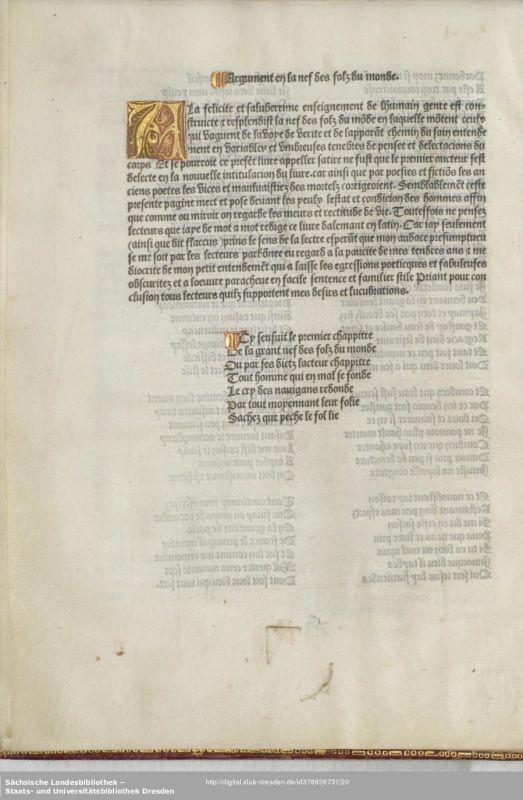 Argument en la nef des folz du monde.
A La felicite et saluberrime enseignement de lhumain genre est con-
struicte et resplendist la nef des folz du mōde en laquelle mōtent ceulx
qui vaguent de la voye de verite et de lapparāt chemin du sain entende
ment en variables et vmbreuses tenebres de pensee et delectacions du
corps Et se pourroit ce presēt liure appeller satire ne fust que le premier aucteur sest
delecte en la nouuelle intitulacion du liure. car ainsi que par poesies et fictiōs les an
ciens poetes les vices et mauluaistiez des mortelz corrigeoient. Semblablemēt ceste
presente pagine mect et pose deuant les yeulx lestat et condicion des hommes affin
que comme ou miroir on regarde les meurs et rectitude de vie. Toutesfois ne pensez
lecteurs que iaye de mot a mot redige ce liure dalemant en latin. Car iay seulement
(ainsi que dit flaccus) prins le sens de la lectre esperāt que mon audace presumptueu
se me soit par les lecteurs pardōnee eu regard a la paucite de mes tendres ans et me
diocrite de mon petit entendemēt qui a laisse les egressions poeticques et fabuleuses
obscuritez et a loeuure paracheue en facile sentence et familier stile Priant pour con
clusion tous lecteurs quilz supportent mes desirs et lucubrations.
Cy sensuit le premier chappitre
De la grant nef des folz du monde
Ou par ses dictz lacteur chappitre
Tout homme qui en mal se fonde
Le cry des nauigans redonde
Par tout moyennant leur folie
Sachez que peche le fol lie
Sächsische Landesbibliothek –
Staats- und Universitätsbibliothek Dresden
http://digital.slub-dresden.de/id378636731/20